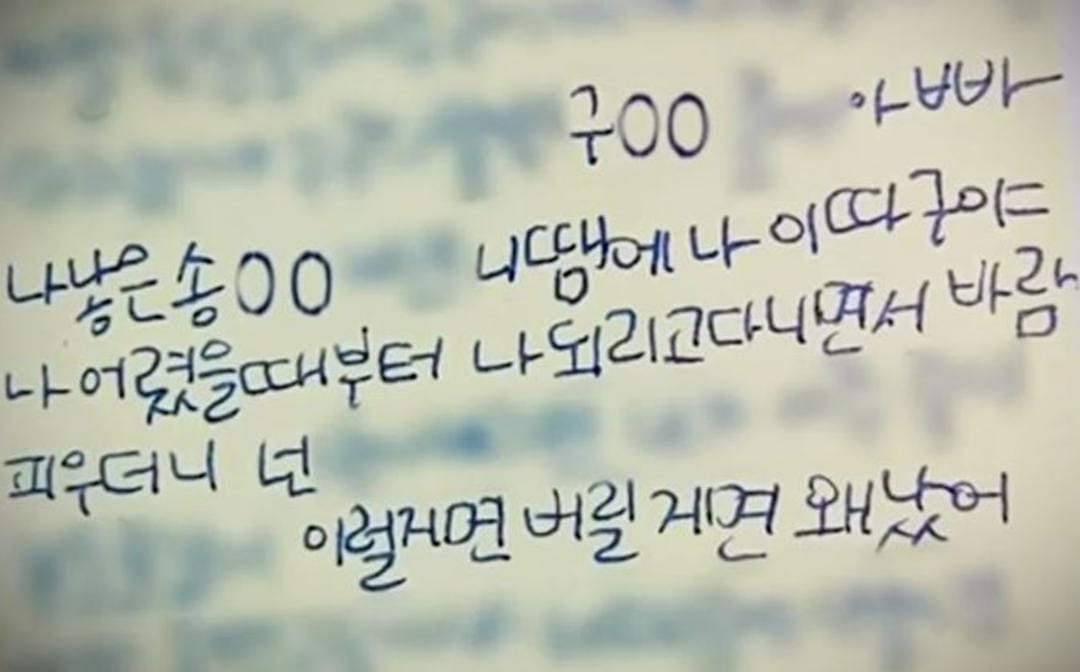 구OO 아빠
나낳은송OO 니땜에나이따구야
나어렸을때부터 나되리고다니면서 바람
피우더니 넌
이럴지면 버릴게면 왜낫어